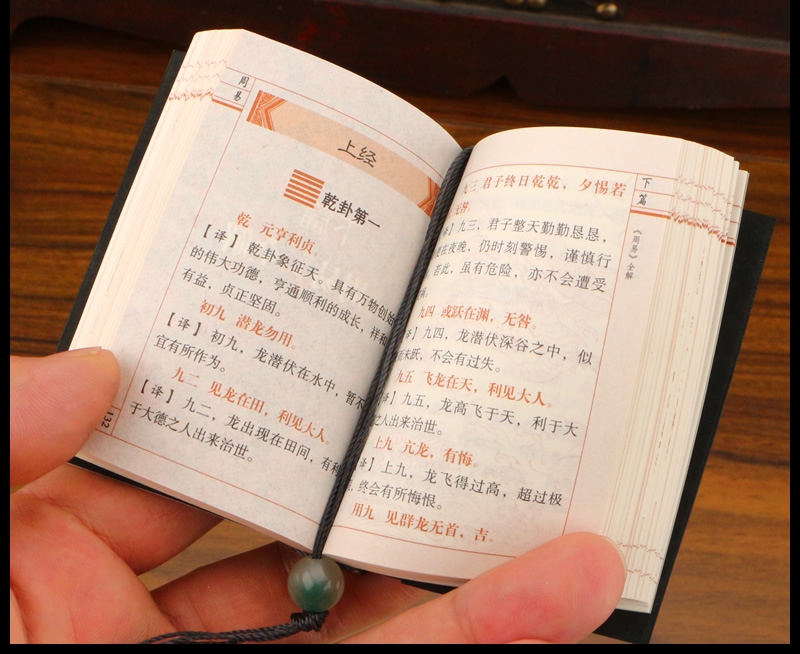 周易
上经
乾卦第一
乾 元亨利贞。
【译】乾卦象征天。具有万物创始
的伟大功德，亨通顺利的成长，祥和
有益，贞正坚固。
初九 潜龙勿用。
【译】初九，龙潜伏在水中，暂不
宜有所作为。
九二 见龙在田，利见大人。
【译】九二，龙出现在田间，有利
于大德之人出来治世。
132
下篇
《周易》全解
九三 君子终日乾乾，夕惕若
无咎。
】九三，君子整天勤勤恳恳，
在夜晚，仍时刻警惕，谨慎行
若此，虽有危险，亦不会遭受
九四 或跃在渊，无咎。
译】九四，龙潜伏深谷之中，似
而未跃，不会有过失。
九五 飞龙在天，利见大人。
译】九五，龙高飞于天，利于大
之人出来治世。
上九 亢龙，有悔。
译】上九，龙飞得过高，超过极
，终会有所悔恨。
用九 见群龙无首，吉。